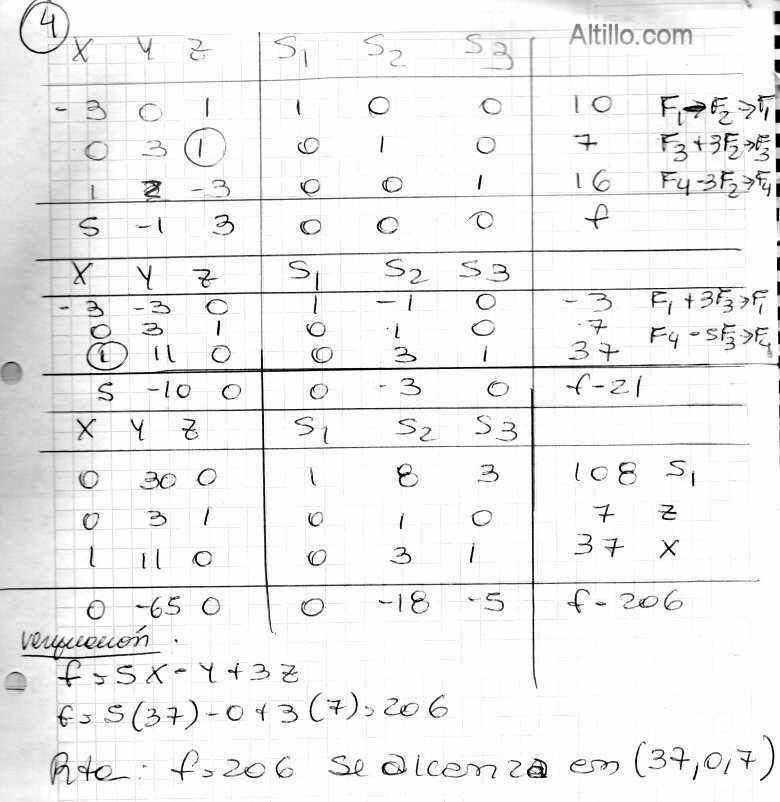 4
Altillo.com
X Y Z S1 S2 S3
-3 0 1 1 0 0 10 F1 → F2 → F1
0 3 1 0 1 0 7 F3 + 3F2 → F3
1 2 -3 0 0 1 16 F4 - 3F2 → F4
5 -1 3 0 0 0 f
X Y Z S1 S2 S3
-3 -3 0 1 -1 0 -3 F1 + 3F3 → F1
0 3 1 0 1 0 7
1 11 0 0 3 1 37 F4 - 5F3 → F4
5 -10 0 0 -3 0 f-21
X Y Z S1 S2 S3
0 30 0 1 8 3 108 S1
0 3 1 0 1 0 7 Z
1 11 0 0 3 1 37 X
0 -65 0 0 -18 -5 f-206
verificación.
f = 5X - Y + 3Z
f = 5(37) - 0 + 3(7) = 206
Rta: f = 206 se alcanza en (37,0,7)